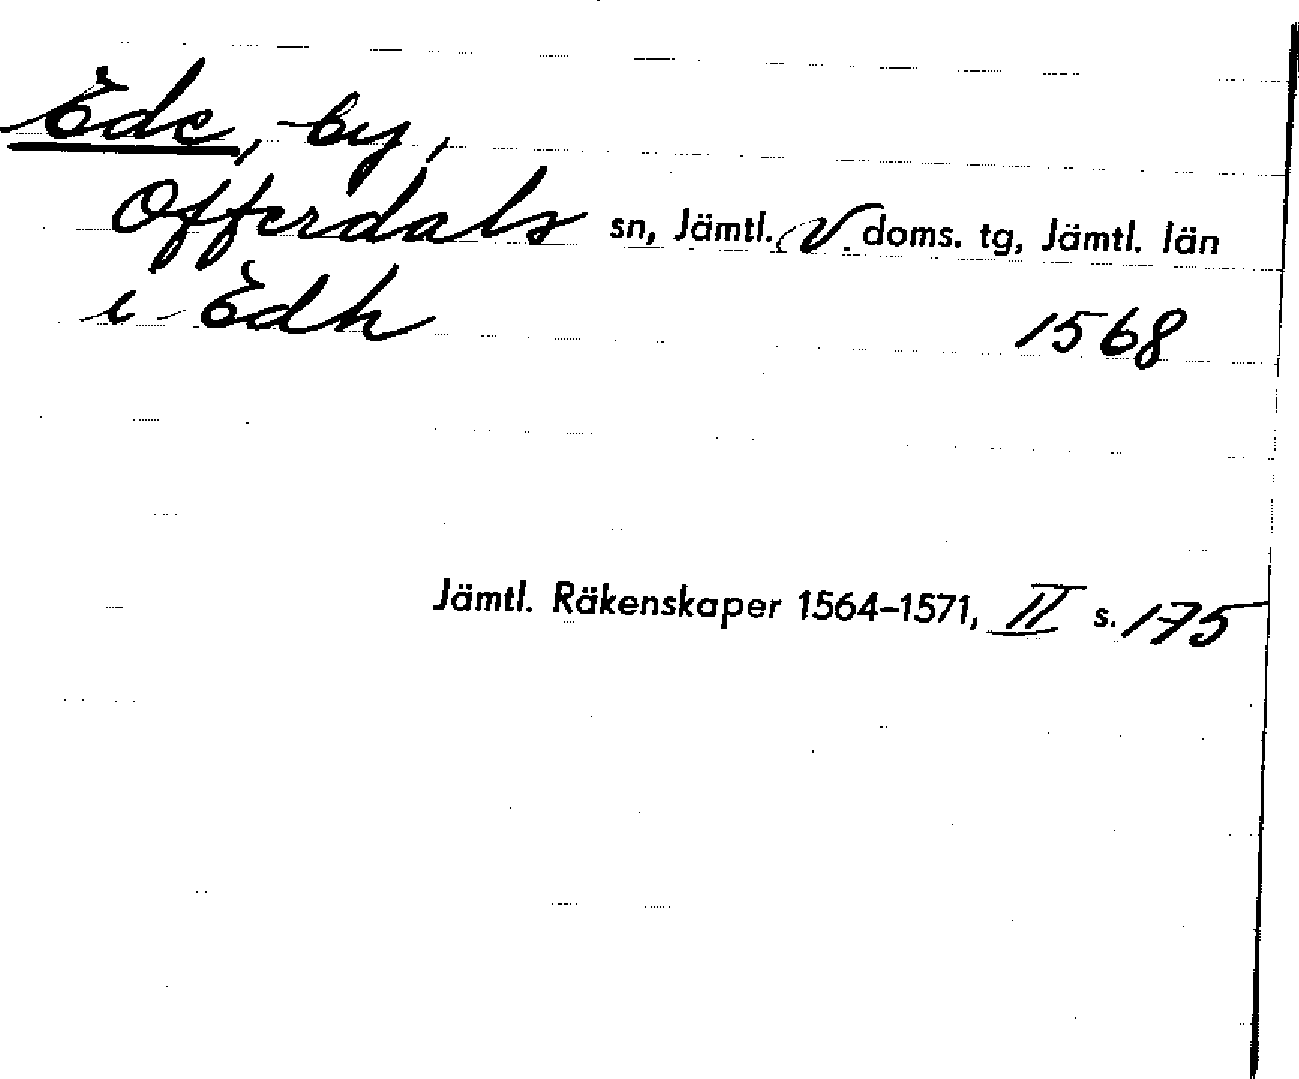 Ede, by,
Offerdals sn, Jämtl. V doms. tg, Jämtl. län
i Edh 1568
Jämtl. Räkenskaper 1564–1571, II s. 175